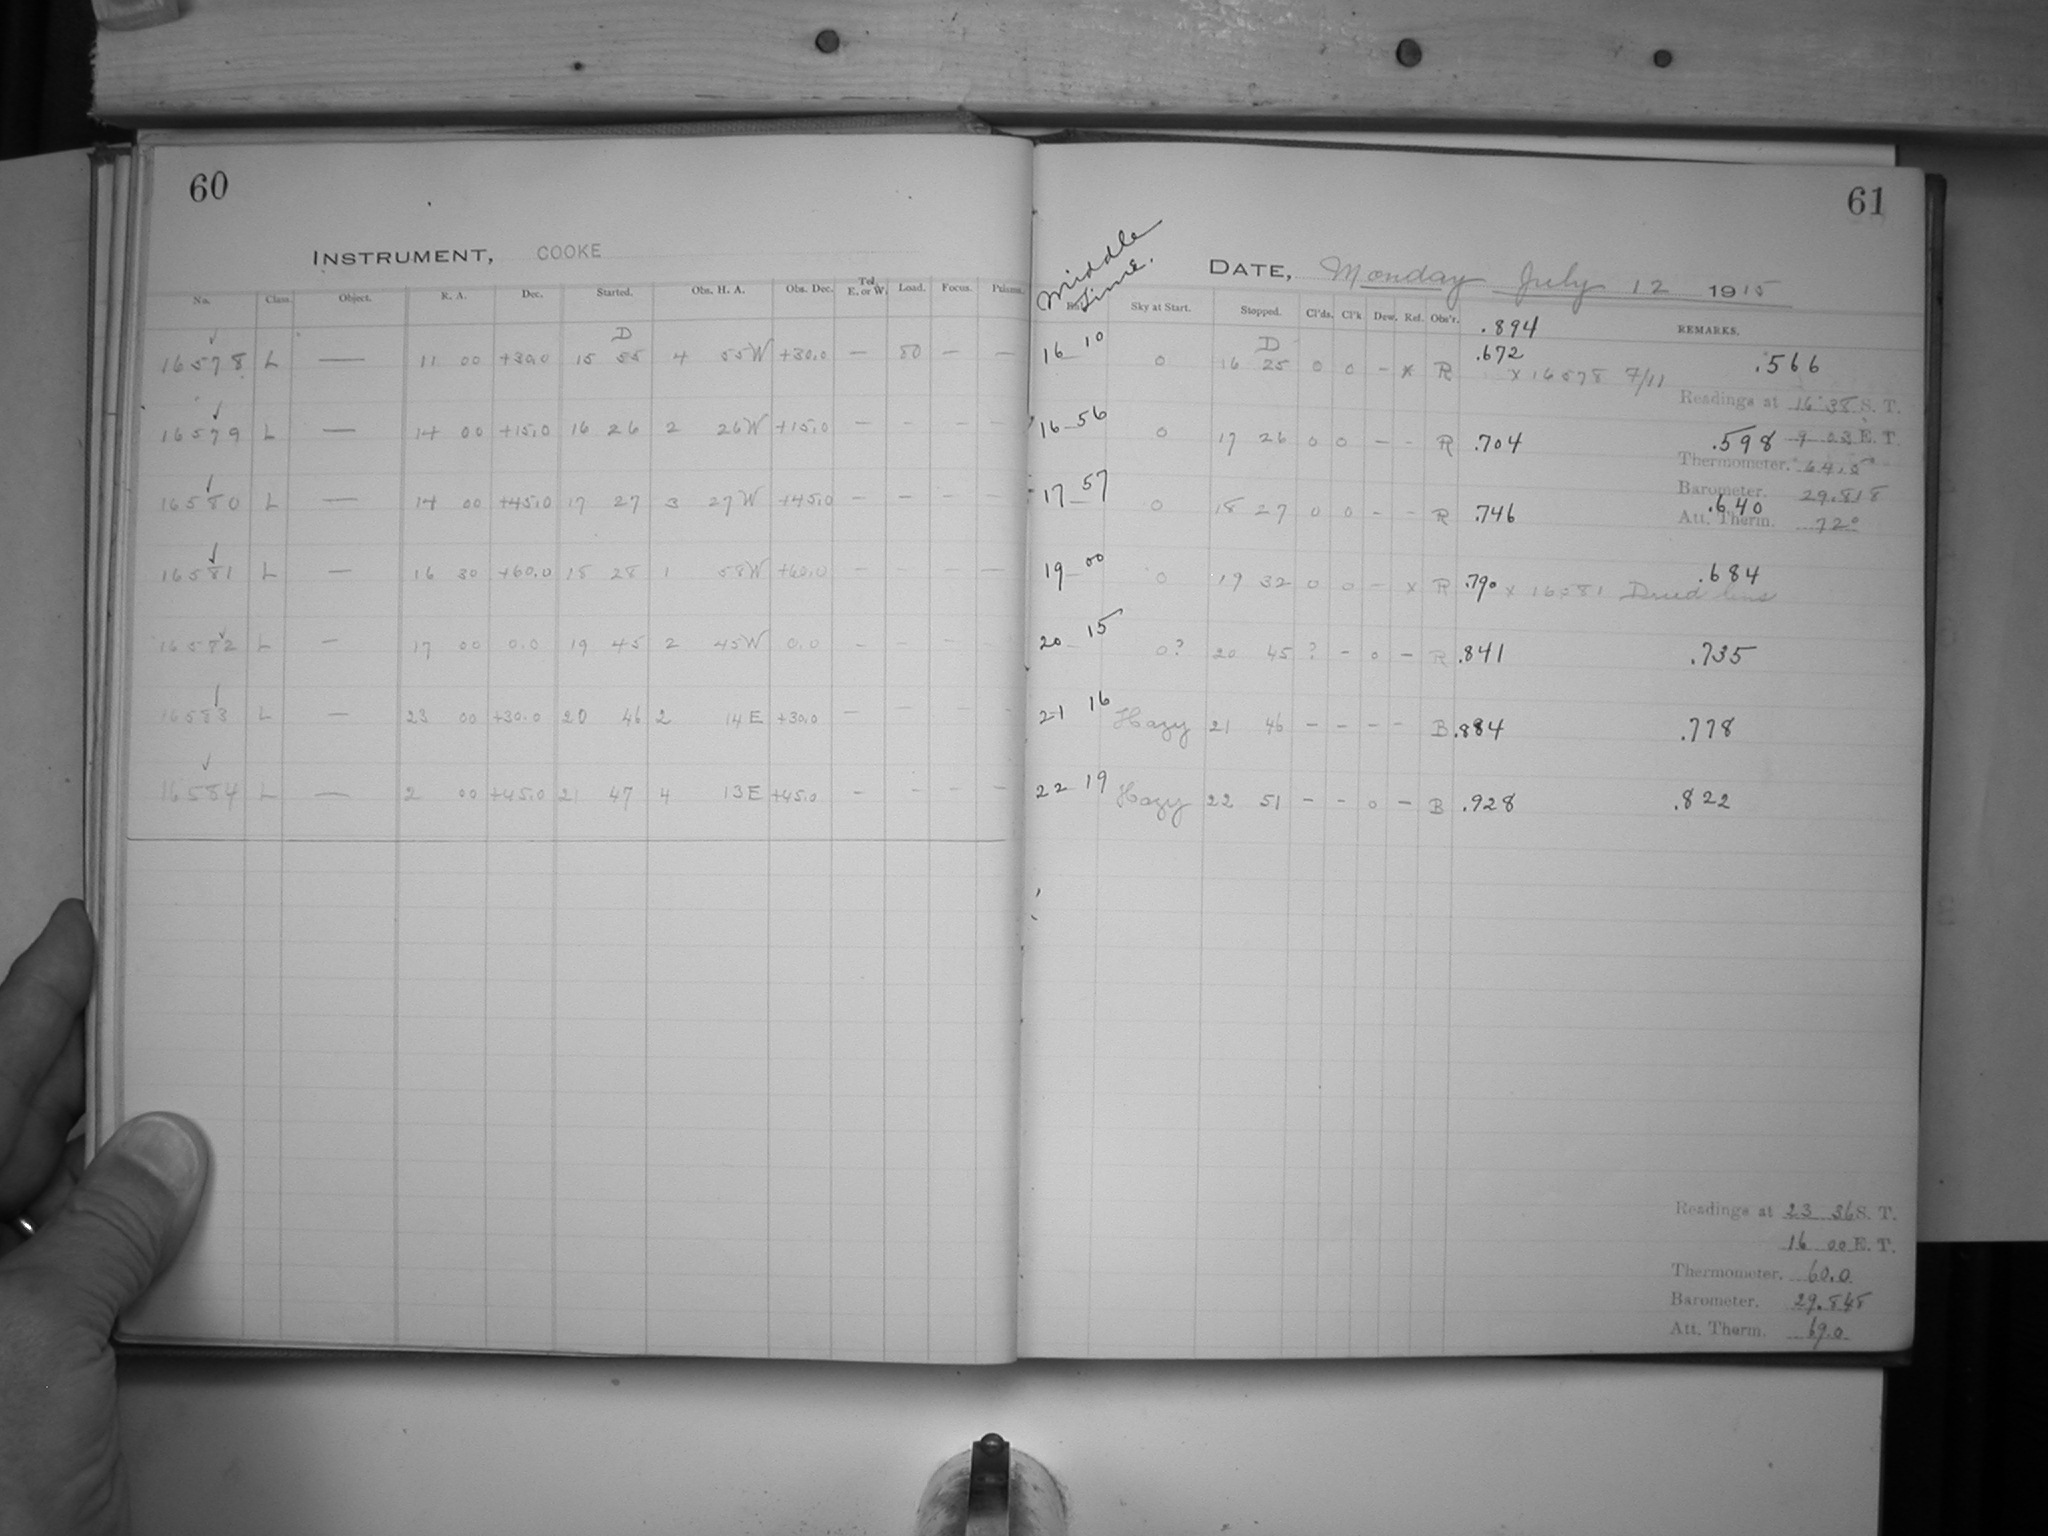 60
INSTRUMENT, COOKE
No. Class. Object. R. A. Dec. Started. Obs. H. A. Obs. Dec. Tel. E. or W. Load. Focus. Prisms.
D
16578 L — 11 00 +30.0 15 55 4 55W +30.0 — 50 — —
16579 L — 14 00 +15.0 16 26 2 26W +15.0 — — — —
16580 L — 14 00 +45.0 17 27 3 27W +45.0 — — — —
16581 L — 16 30 +60.0 18 28 1 58W +60.0 — — — —
16582 L — 17 00 0.0 19 45 2 45W 0.0 — — — —
16583 L — 23 00 +30.0 20 46 2 14E +30.0 — — — —
16584 L — 2 00 +45.0 21 47 4 13E +45.0 — — — —
61
Middle Time.
DATE, Monday July 12 1915
Sky at Start. Stopped. Cl'ds. Cl'k Dew. Rel. Obs'r. REMARKS.
.894
D
16 10 0 16 25 0 0 — x R .672 x 16578 7/11 .566
Readings at 16 38 S. T.
16 56 0 17 26 0 0 — - R .704 .598 9 03 E. T.
Thermometer. 64.5
Barometer. 29.818
17 57 0 18 27 0 0 - - R .746 .640
Att. Therm. 72°
19 00 0 19 32 0 0 — x R .790 x 16581 Dried lens .684
20 15 0? 20 45 ? - 0 — R .841 .735
21 16 Hazy 21 46 — — — — B .884 .778
22 19 Hazy 22 51 — — 0 — B .928 .822
Readings at 23 36 S. T.
16 00 E. T.
Thermometer. 60.0
Barometer. 29.848
Att. Therm. 69.0